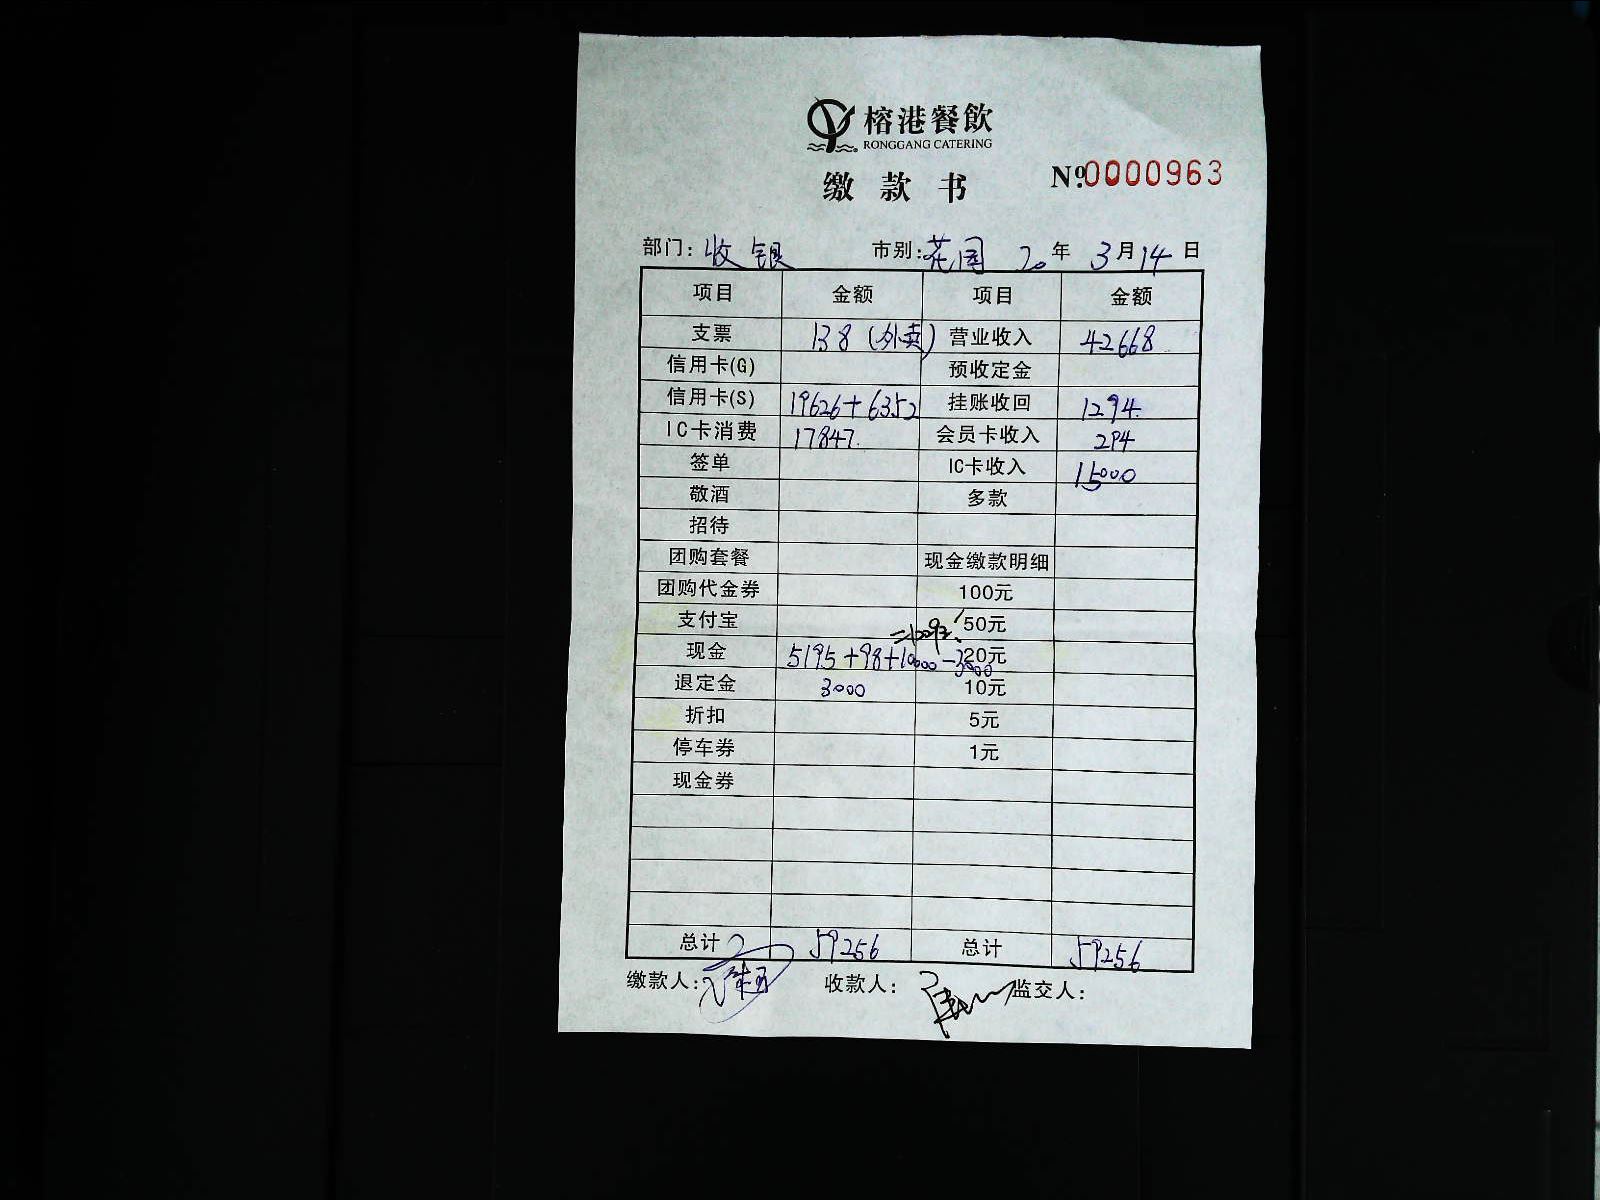 榕港餐飲
RONGGANG CATERING
缴款书 №0000963
部门: 收银 市别: 花园 20年 3月14日
项目 金额 项目 金额
支票 138 (外卖) 营业收入 42668
信用卡(G) 预收定金
信用卡(S) 19626+6352 挂账收回 1294.
IC卡消费 17847. 会员卡收入 294
签单 IC卡收入 15000
敬酒 多款
招待
团购套餐 现金缴款明细
团购代金券 100元
支付宝 50元
现金 5195+98+10000-3000 20元
退定金 3000 10元
折扣 5元
停车券 1元
现金券
总计 59256 总计 59256
缴款人: 收款人: 监交人: